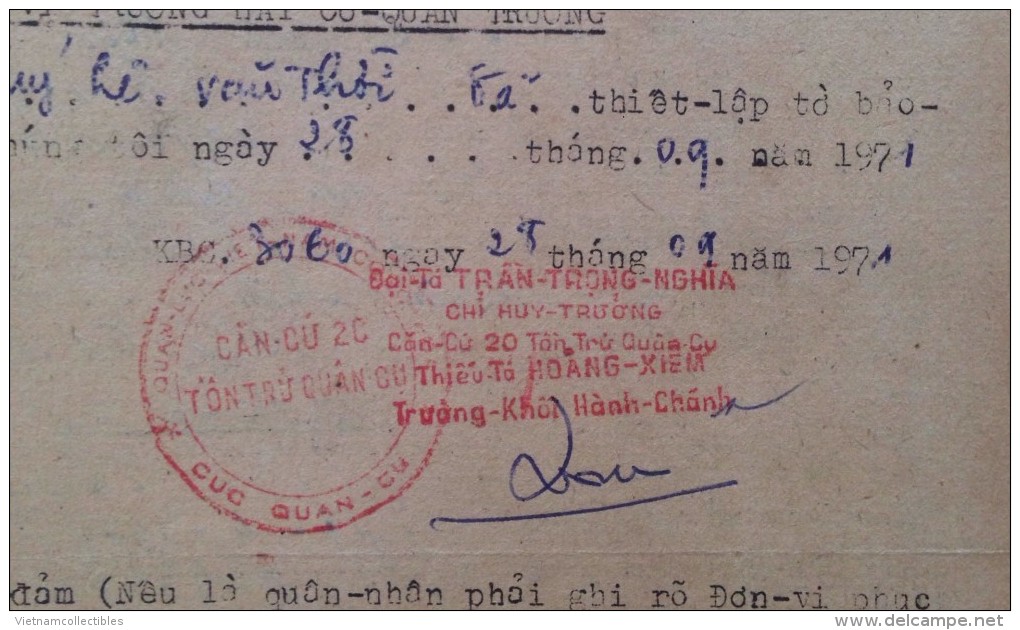 TRƯỞNG HAY CƠ-QUAN TRƯỞNG
thiết-lập tờ bảo-
tôi ngày 28 . . . . tháng.09. năm 1971
KBC. 3060 ngay 28 tháng 09 năm 1971
Đại-Tá TRẦN-TRỌNG-NGHĨA
CHỈ HUY-TRƯỞNG
Căn-Cứ 20 Tồn Trữ Quân-Cụ
Thiếu-Tá HOÀNG-XIEM
Trưởng-Khối Hành-Chánh
CĂN-CỨ 20
TỒN TRỮ QUÂN CỤ
CỤC QUÂN-CỤ
đảm (Nếu là quân-nhân phải ghi rõ Đơn-vị phục
Vietnamcollectibles
www.delcampe.net